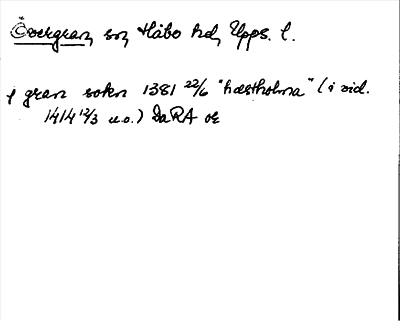 Övergran sn Håbo hd, Upps. l.
j gran sokn 1381 22/6 "hæstholma" (i vid.
1414 12/3 u.o.) DaRA or